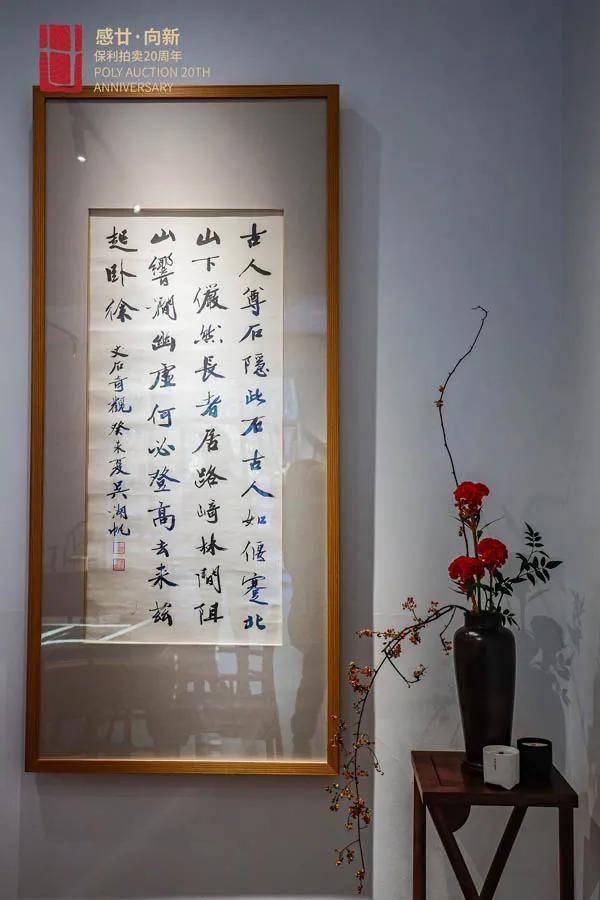 感廿·向新
保利拍卖20周年
POLY AUCTION 20TH
ANNIVERSARY
古人尊石隱此石古人如偃蹇北
山下儼然長者居路崎林間阻
山響澗幽虛何必登高去來茲
起卧徐
文石奇觀癸未夏吳湖帆